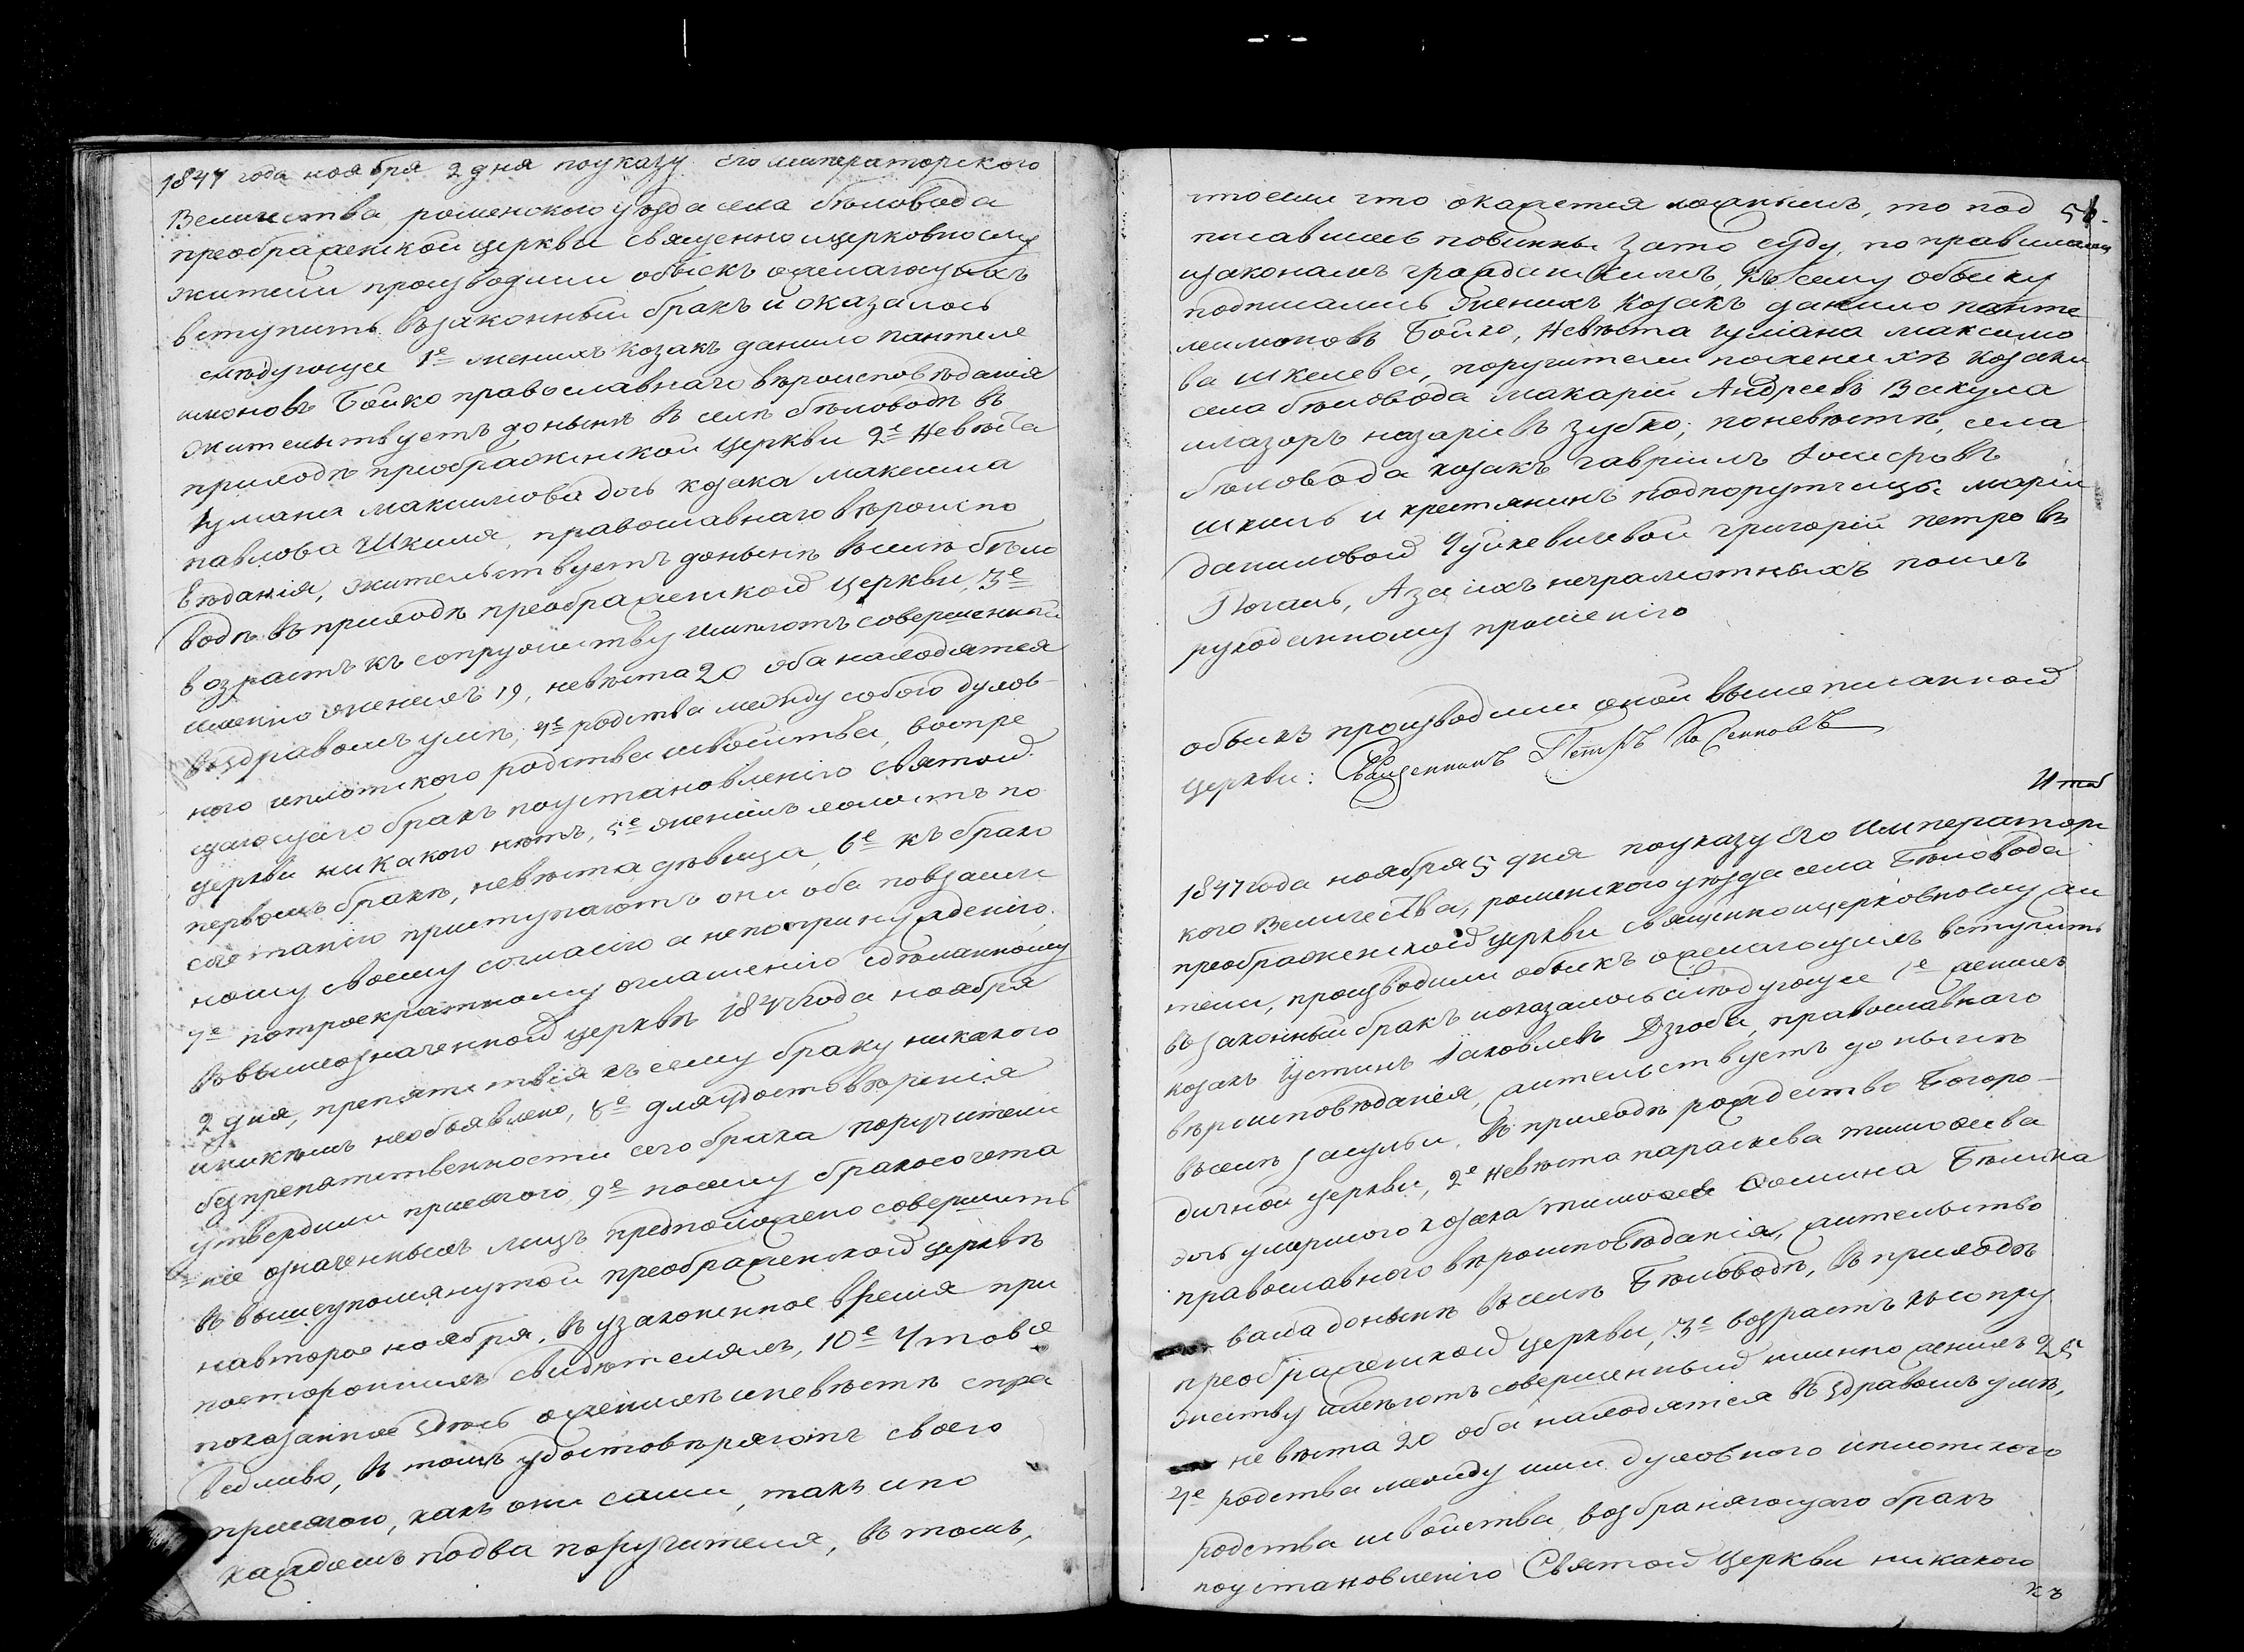 1847 года ноября 2 дня поуказу Его императорского
Величества, роменского уѣзда села бѣловода
преображенской церкви священноицерковнослу
жители производили обыскъ ожелающихъ
вступить взаконный бракъ и оказалось
слѣдующее 1е женихъ козакъ данило пантеле
имоновъ Бойко православнаго вѣроисповѣданія
жительствуетъ донынѣ въ селѣ бѣловодѣ въ
приходѣ преображенской церкви 2е Невѣста
Іуліана максимова дочь козака максима
павлова Шкиля, православнаго вѣроиспо
вѣданія, жительствуетъ донынѣ вселѣ бѣло
водѣ въ приходѣ преображенской церкви, 3е
возрастъ къ сопружеству имѣютъ совершенный
именно женихъ 19, невѣста 20 оба находятся
въ здравомъ умѣ, 4е родства между собою духов
ного иплотского родства исвойства, воспре
щающаго бракъ поустановленію святой
церкви никакого нѣтъ, 5е женихъ холостъ по
первомъ бракѣ, невѣста дѣвица, 6е къ брако
сочетанію приступаютъ они оба повзаим
ному своему согласію а непопринужденію
7е потроекратному оглашенію сдѣланному
въ вышеозначенной церквѣ 1847 года ноября
2 дня, препятствія къ сему браку никакого
иникѣмъ необъявлено, 8е дляудостовѣренія
безпрепятственности сего брака поручители
утвердили присягою, 9е посему бракосочета
ніе означенныхъ лицъ предположено совершить
въ вышеупомянутой преображенской церквѣ
навторое ноября, въ узаконенное время при
постороннихъ свидѣтеляхъ, 10е Что все
показанное здѣсь оженихѣ иневѣстѣ спра
ведливо, въ томъ удостовѣряютъ своею
присягою, какъ они сами, такъ ипо
каждомъ подва поручителя, въ томъ,
чтоесли что окажется ложнымъ, то под
писавшіесь повинны зато суду, по правиламъ
изаконамъ гражданскимъ, Къ сему обыску
подписались Женихъ козакъ данило панте
леимоновъ Бойко, Невѣста Іуліана максимо
ва шкелева, поручители поженихѣ козаки
села бѣловода макарій Андреевъ Вакула
илазоръ назаріевъ зубко; поневѣстѣ, села
бѣловода козакъ гавріилъ Іосифовъ
шкиль и крестьянинъ подпорутчицы маріи
даниловой Чуйкевичевой григорій петровъ
А за ихъ неграмотныхъ поихъ
рукоданному прошенію
обыскъ производили оной вышеписанной
церкви: Священникъ Петръ
1847 года ноября 5 дня поуказу Его Император
кого Величества, роменского уѣзда села Бѣловода
преображенской церкви священноицерковнослужи
тели, производили обыскъ ожелающихъ вступить
взаконный бракъ иоказалось слѣдующее 1е женихъ
козакъ Іустинъ Іаковлевъ Дзюба, православнаго
вѣроисповѣданія, жительствуетъ до нынѣ
вселѣ засульи, въ приходѣ рождество Богоро-
дичной церкви, 2е Невѣста параскева тимоѳеева
дочь умершого козака тимоѳея Ѳомина Бѣлика
православного вѣроисповѣданія, жительство
вала донынѣ вселѣ Бѣловодѣ, въ приходѣ
преображенской церкви, 3е возрастъ къ сопру
жеству имѣютъ совершенный именно женихъ 25
невѣста 20 оба находятся въ здравомъ умѣ,
4е родства между ими духовного иплотского
родства исвойства, возбраняющаго бракъ
поустановленію Святой Церкви никакого